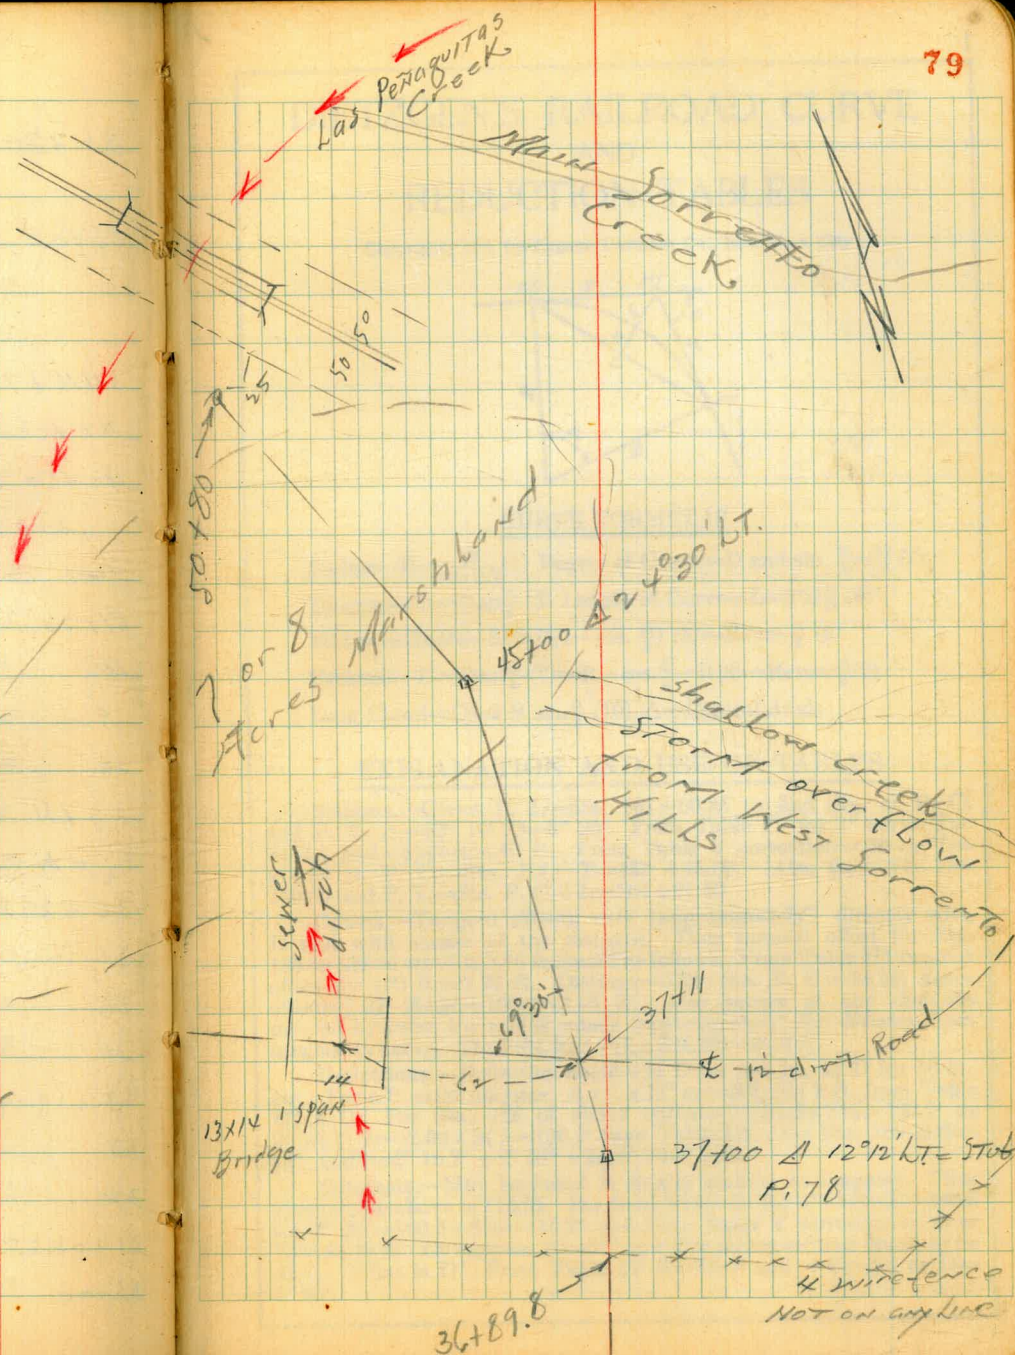 79
Las Peñaquitas
Creek
Main Sorrento
Creek
N
50
50
25
50+80
Marshland
7 or 8
Acres
45+00 Δ 24°30' LT.
shallow creek
STORM overflow
from West Sorrento
HILLS
sewer
DITCH
69°30'
37+11
62
℄ 12' dirt Road
14
13x14 1 span
Bridge
37+00 Δ 12°12' LT. = STub
P. 78
4 wire fence
NOT ON any LINE
36+89.8